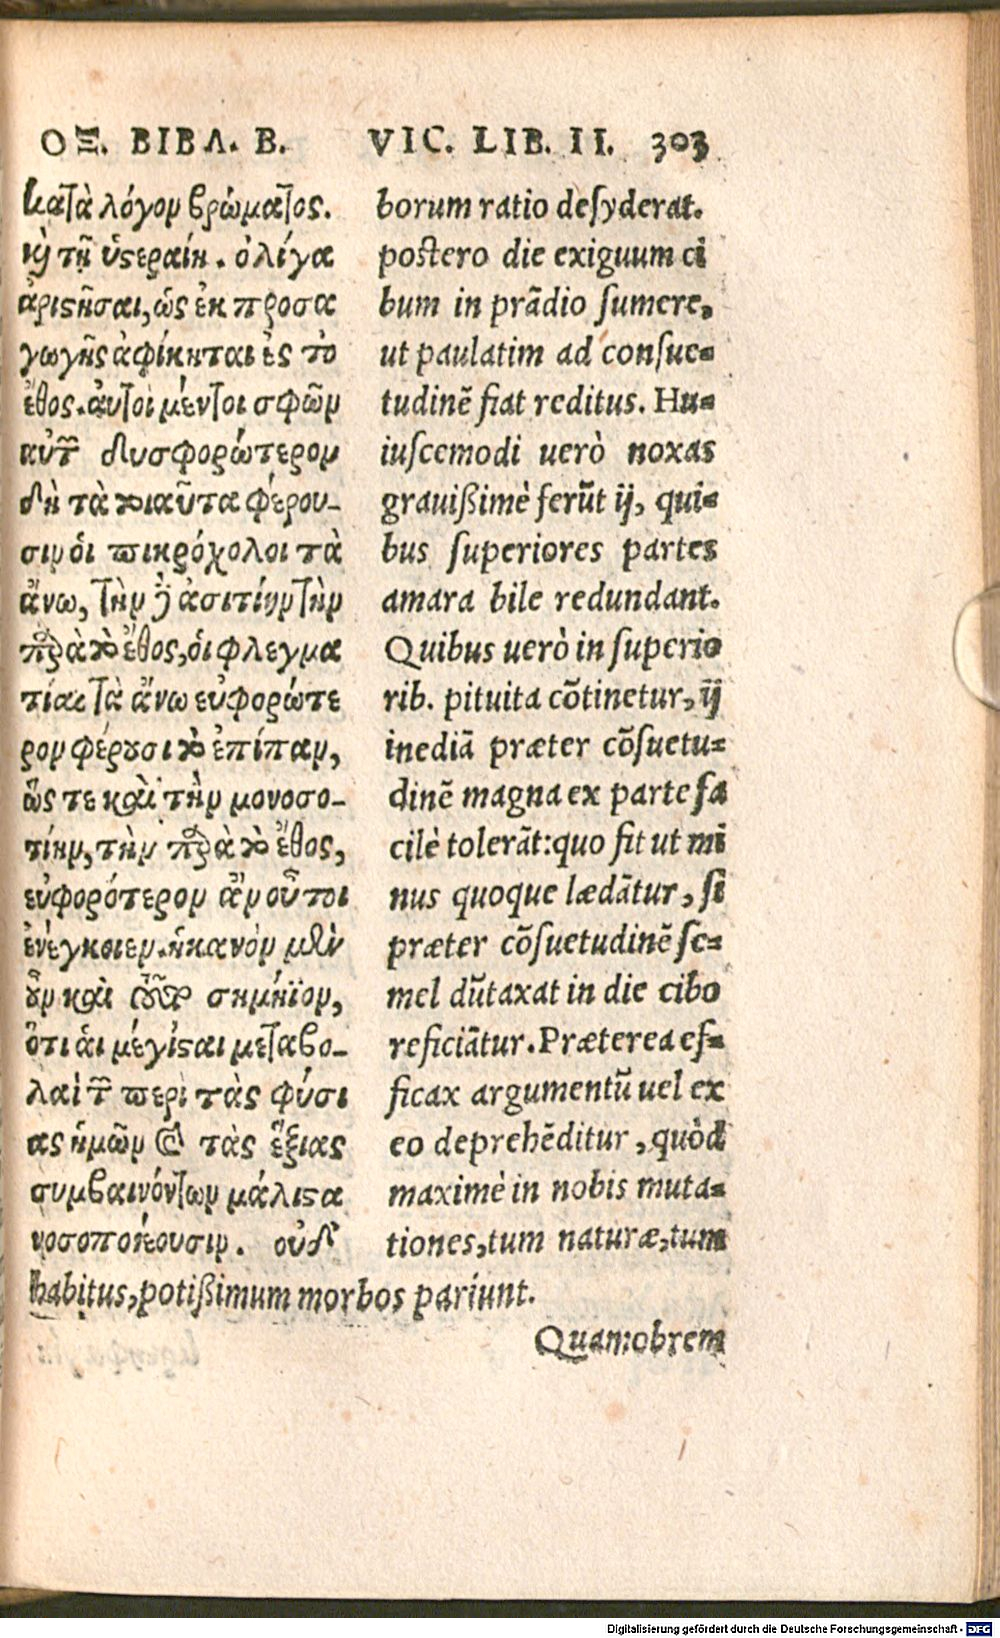 ΟΞ. ΒΙΒΛ. Β.
κατὰ λόγον βρώματος.
καὶ τῇ ὑστεραίη. ὀλίγα
ἀριστῆσαι, ὡς ἐκ προσα
γωγῆς ἀφίκηται ἐς τὸ
ἔθος. αὐτοὶ μέντοι σφῶν
αὐτῶν δυσφορώτερον
δὴ τὰ τοιαῦτα φέρου-
σιν οἱ πικρόχολοι τὰ
ἄνω, τὴν δὲ ἀσιτίην τὴν
παρὰ τὸ ἔθος, οἱ φλεγμα
τίαι τὰ ἄνω εὐφορώτε
ρον φέρουσι τὸ ἐπίπαν,
ὥς τε καὶ τὴν μονοσο-
τίην, τὴν παρὰ τὸ ἔθος,
εὐφορότερον ἂν οὗτοι
ἐνέγκοιεν. ἡκανὸν μὲν
οὖν καὶ τοῦτο σημήϊον,
ὅτι αἱ μέγισται μεταβο-
λαὶ τῶν περὶ τὰς φύσι
ας ἡμῶν καὶ τὰς ἕξιας
συμβαινόντων μάλιστα
νοσοποιέουσιν. οὐδ᾽
VIC. LIB. II. 303
borum ratio desyderat.
postero die exiguum ci
bum in prãdio sumere,
ut paulatim ad consue-
tudinẽ fiat reditus. Hu-
iuscemodi uerò noxas
grauißimè ferũt ij, qui-
bus superiores partes
amara bile redundant.
Quibus uerò in superio
rib. pituita cõtinetur, ij
inediã præter cõsuetu-
dinẽ magna ex parte fa
cilè tolerãt: quo fit ut mi
nus quoque lædãtur, si
præter cõsuetudinẽ se-
mel dũtaxat in die cibo
reficiãtur. Præterea ef-
ficax argumentũ uel ex
eo deprehẽditur, quòd
maximè in nobis muta-
tiones, tum naturæ, tum
habitus, potißimum morbos pariunt.
Quamobrem
Digitalisierung gefördert durch die Deutsche Forschungsgemeinschaft - DFG